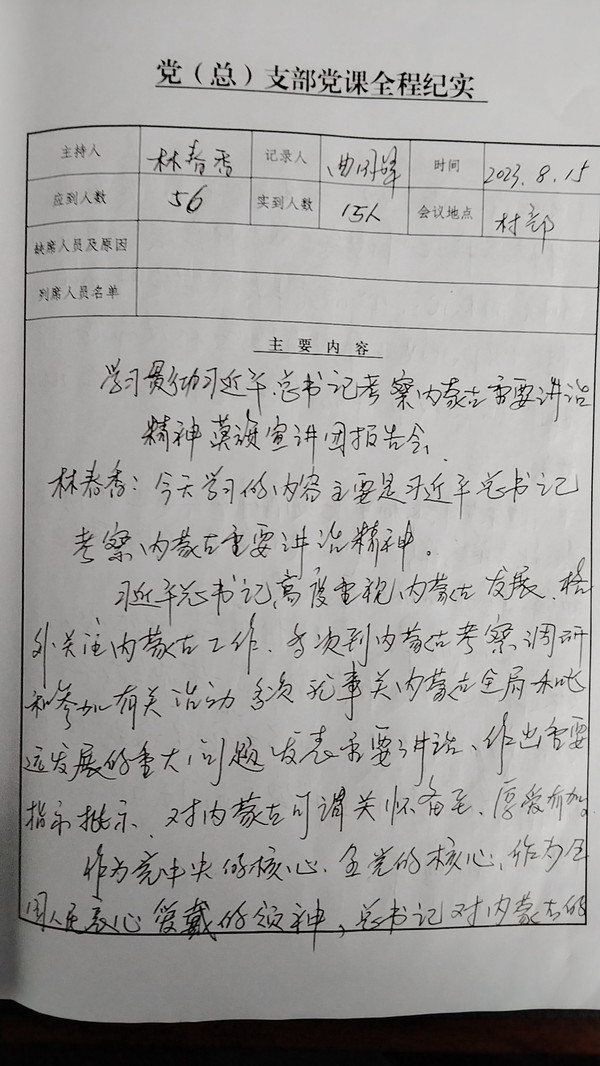 党（总）支部党课全程纪实
主持人 林春香 记录人 时间 2023.8.15
应到人数 56 实到人数 15人 会议地点 村部
缺席人员及原因
列席人员名单
主要内容
学习贯彻习近平总书记考察内蒙古重要讲话
精神莫旗宣讲团报告会
林春香：今天学习的内容主要是习近平总书记
考察内蒙古重要讲话精神。
习近平总书记高度重视内蒙古发展、格
外关注内蒙古工作、多次到内蒙古考察调研
和参加有关活动多次就事关内蒙古全局和长
远发展的重大问题发表重要讲话、作出重要
指示批示、对内蒙古可谓关怀备至、厚爱有加。
作为党中央的核心、全党的核心、作为全
国人民衷心爱戴的领袖，总书记对内蒙古的